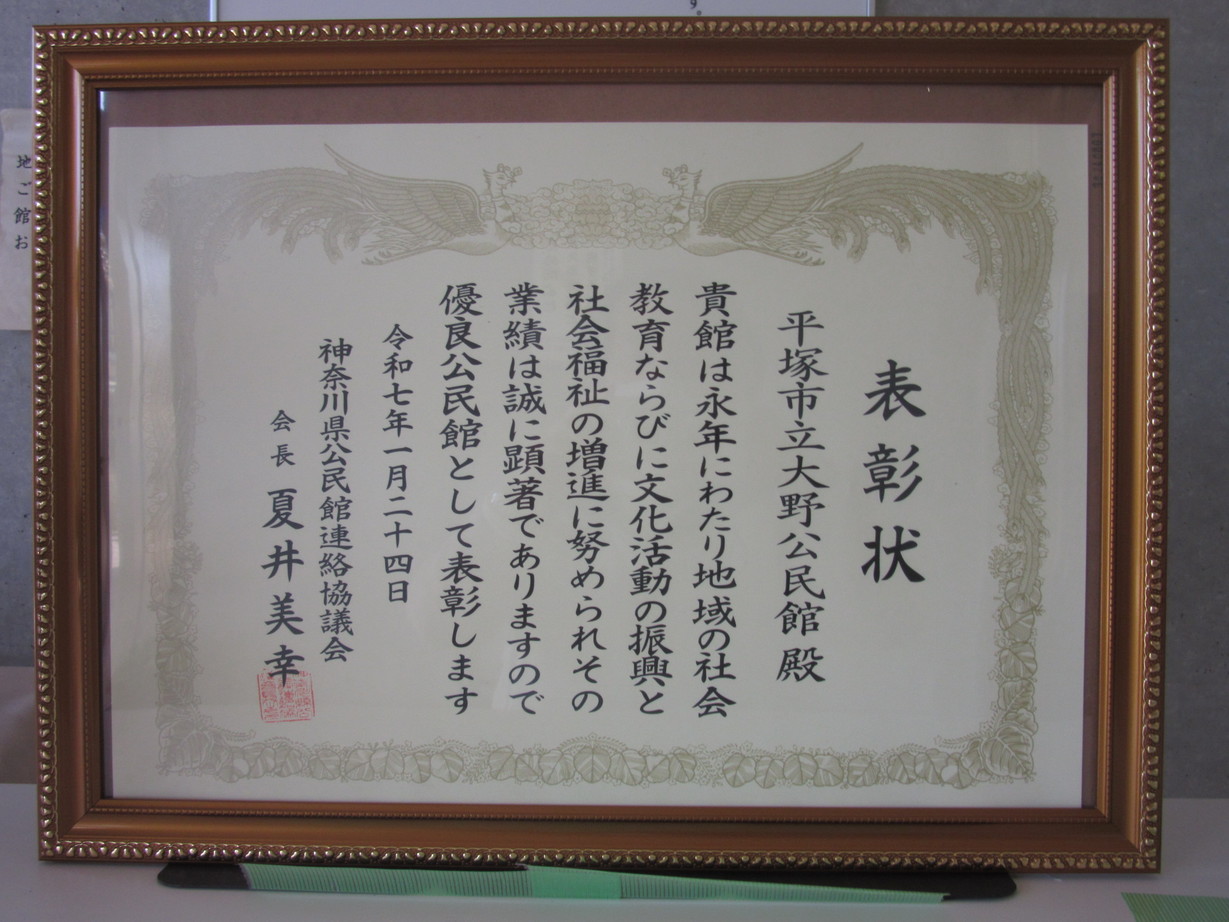 表彰状
平塚市立大野公民館殿
貴館は永年にわたり地域の社会
教育ならびに文化活動の振興と
社会福祉の増進に努められその
業績は誠に顕著でありますので
優良公民館として表彰します
令和七年一月二十四日
神奈川県公民館連絡協議会
会長 夏井美幸
地ご館お
9